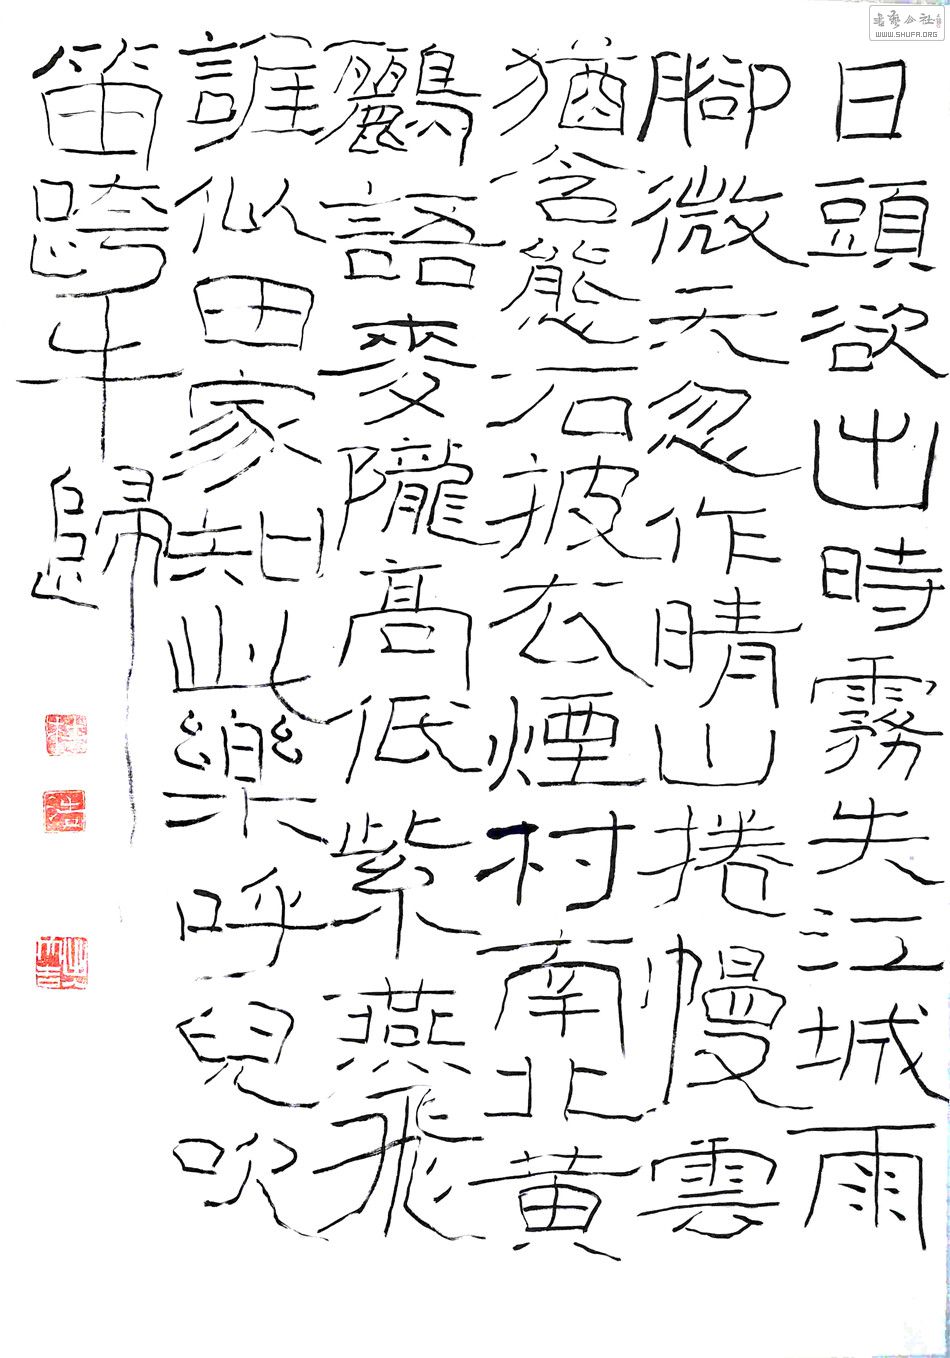 書藝公社
WWW.SHUFA.ORG
日頭欲出時霧失江城雨
腳微天忽作晴山捲幔雲
猶含態石披衣煙村南北黃
鸝語麥隴高低紫燕飛
誰似田家知此樂呼兒吹
笛跨牛歸